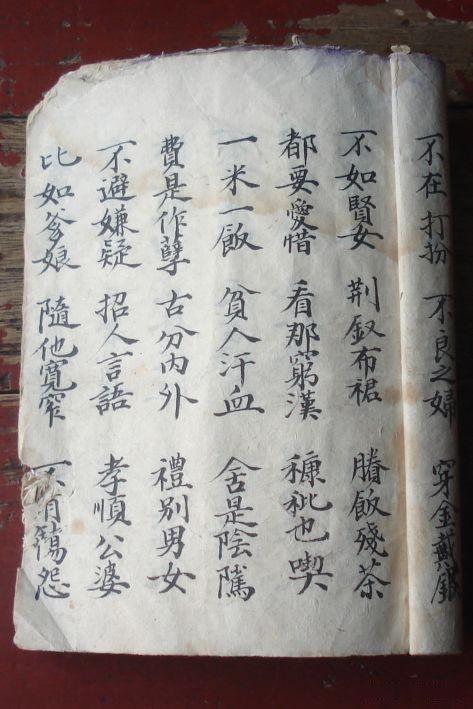 不在打扮 不良之婦 穿金戴銀
不如賢女 荆釵布裙 賸飯殘茶
都要愛惜 看那窮漢 糠粃也喫
一米一飯 貧人汗血 舍是陰騭
費是作孽 古分內外 禮別男女
不避嫌疑 招人言語 孝順公婆
比如爹娘 隨他寬窄 不 怨